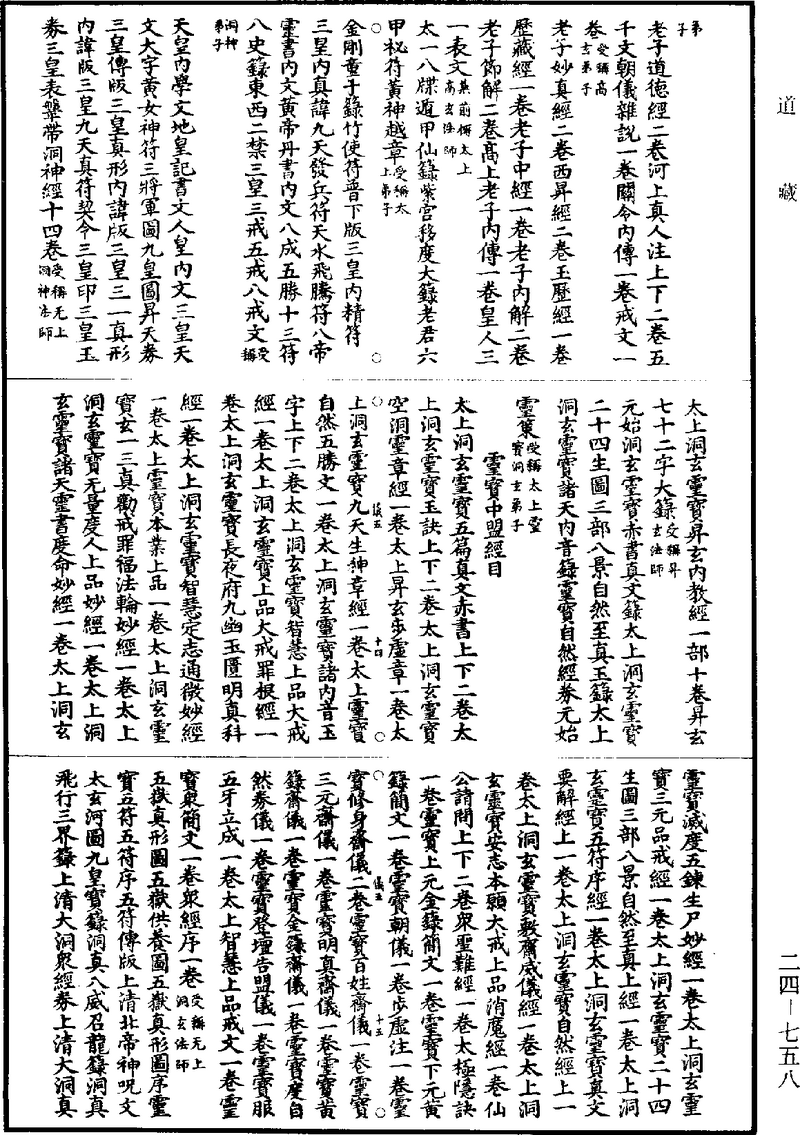 道藏
弟子
老子道德經二卷河上真人注上下二卷五
千文朝儀雜説一卷關令內傳一卷戒文一
卷受稱高玄弟子
老子妙真經二卷西昇經二卷玉歷經一卷
歷藏經一卷老子中經一卷老子內解二卷
老子節解二卷高上老子內傳一卷皇人三
一表文
太一八牒遁甲仙籙紫宫移度大籙老君六
甲祕符黃神越章受稱太上弟子
金剛童子籙竹使符普下版三皇內精符
三皇內真諱九天發兵符天水飛騰符八帝
靈書內文黃帝丹書內文八成五勝十三符
八史籙東西二禁三皇三戒五戒八戒文受稱
洞神弟子
天皇內學文地皇記書文人皇內文三皇天
文大字黃女神符三將軍圖九皇圖昇天券
三皇傳版三皇真形內諱版三皇三一真形
內諱版三皇九天真符契令三皇印三皇玉
券三皇表鞶帶洞神經十四卷受稱无上洞神法師
太上洞玄靈寶昇玄內教經一部十卷昇玄
七十二字大籙受稱昇玄法師
元始洞玄靈寶赤書真文籙太上洞玄靈寶
二十四生圖三部八景自然至真玉籙太上
洞玄靈寶諸天內音籙靈寶自然經券元始
靈策受稱太上靈寶洞玄弟子
靈寶中盟經目
太上洞玄靈寶五篇真文赤書上下二卷太
上洞玄靈寶玉訣上下二卷太上洞玄靈寶
空洞靈章經一卷太上昇玄步虛章一卷太
上洞玄靈寶九天生神章經一卷太上靈寶
自然五勝文一卷太上洞玄靈寶諸內音玉
字上下二卷太上洞玄靈寶智慧上品大戒
經一卷太上洞玄靈寶上品大戒罪根經一
卷太上洞玄靈寶長夜府九幽玉匱明真科
經一卷太上洞玄靈寶智慧定志通微妙經
一卷太上靈寶本業上品一卷太上洞玄靈
寶玄一三真勸戒罪福法輪妙經一卷太上
洞玄靈寶无量度人上品妙經一卷太上洞
玄靈寶諸天靈書度命妙經一卷太上洞玄
靈寶滅度五鍊生尸妙經一卷太上洞玄靈
寶三元品戒經一卷太上洞玄靈寶二十四
生圖三部八景自然至真上經一卷太上洞
玄靈寶五符序經一卷太上洞玄靈寶真文
要解經上一卷太上洞玄靈寶自然經上一
卷太上洞玄靈寶敷齋威儀經一卷太上洞
玄靈寶安志本願大戒上品消魔經一卷仙
公請問上下二卷衆聖難經一卷太極隱訣
一卷靈寶上元金籙簡文一卷靈寶下元黃
籙簡文一卷靈寶朝儀一卷步虛注一卷靈
寶修身齋儀二卷靈寶百姓齋儀一卷靈寶
三元齋儀一卷靈寶明真齋儀一卷靈寶黃
籙齋儀一卷靈寶金籙齋儀一卷靈寶度自
然券儀一卷靈寶登壇告盟儀一卷靈寶服
五牙立成一卷太上智慧上品戒文一卷靈
寶衆簡文一卷衆經序一卷受稱无上洞玄法師
五嶽真形圖五嶽供養圖五嶽真形圖序靈
寶五符五符序五符傳版上清北帝神呪文
太玄河圖九皇寶籙洞真八威召龍籙洞真
飛行三界籙上清大洞衆經券上清大洞真
二四—七五八